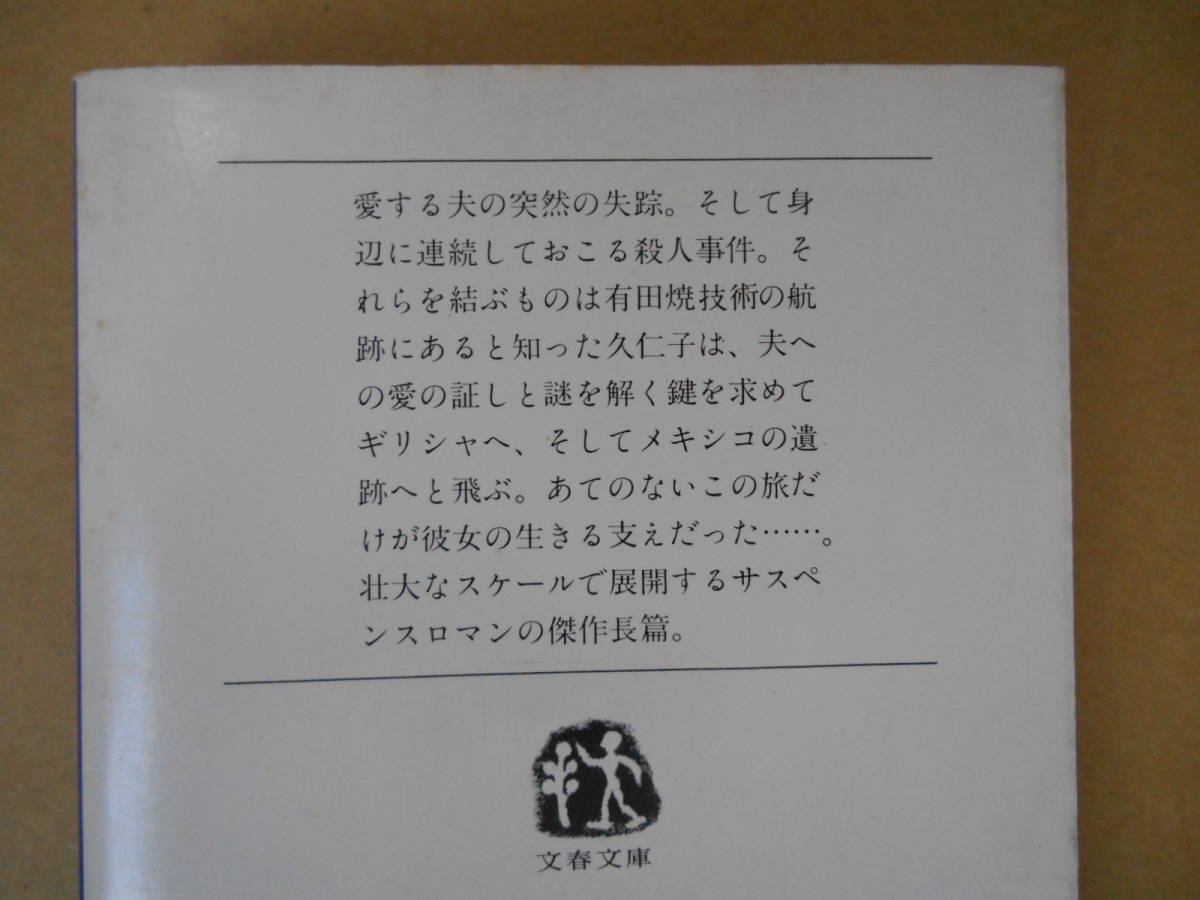 愛する夫の突然の失踪。そして身
辺に連続しておこる殺人事件。そ
れらを結ぶものは有田焼技術の航
跡にあると知った久仁子は、夫へ
の愛の証しと謎を解く鍵を求めて
ギリシャへ、そしてメキシコの遺
跡へと飛ぶ。あてのないこの旅だ
けが彼女の生きる支えだった……。
壮大なスケールで展開するサスペ
ンスロマンの傑作長篇。
文春文庫